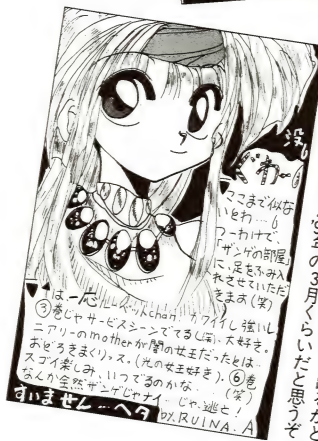 没
わー
▼ここまで似な
いとわ…。
つーわけで、
「ザンゲの部屋」
に、足をふみ入
れさせていただ
きます(笑)
▼は一応…chan。カワイイし強いし
③巻じゃサービスシーンでてるし(笑)、大好き。
ニアリーのmotherが闇の女王だったとは…
おどろきまくりっス。(光の女王好き)。⑥巻
スゴイ楽しみ、いつでるのかな。(笑)
なんか全然ザンゲじゃナイ…じゃ、逃亡!
すいません…ヘタ by.RUINA.A
年の3月くらいだと思うぞ